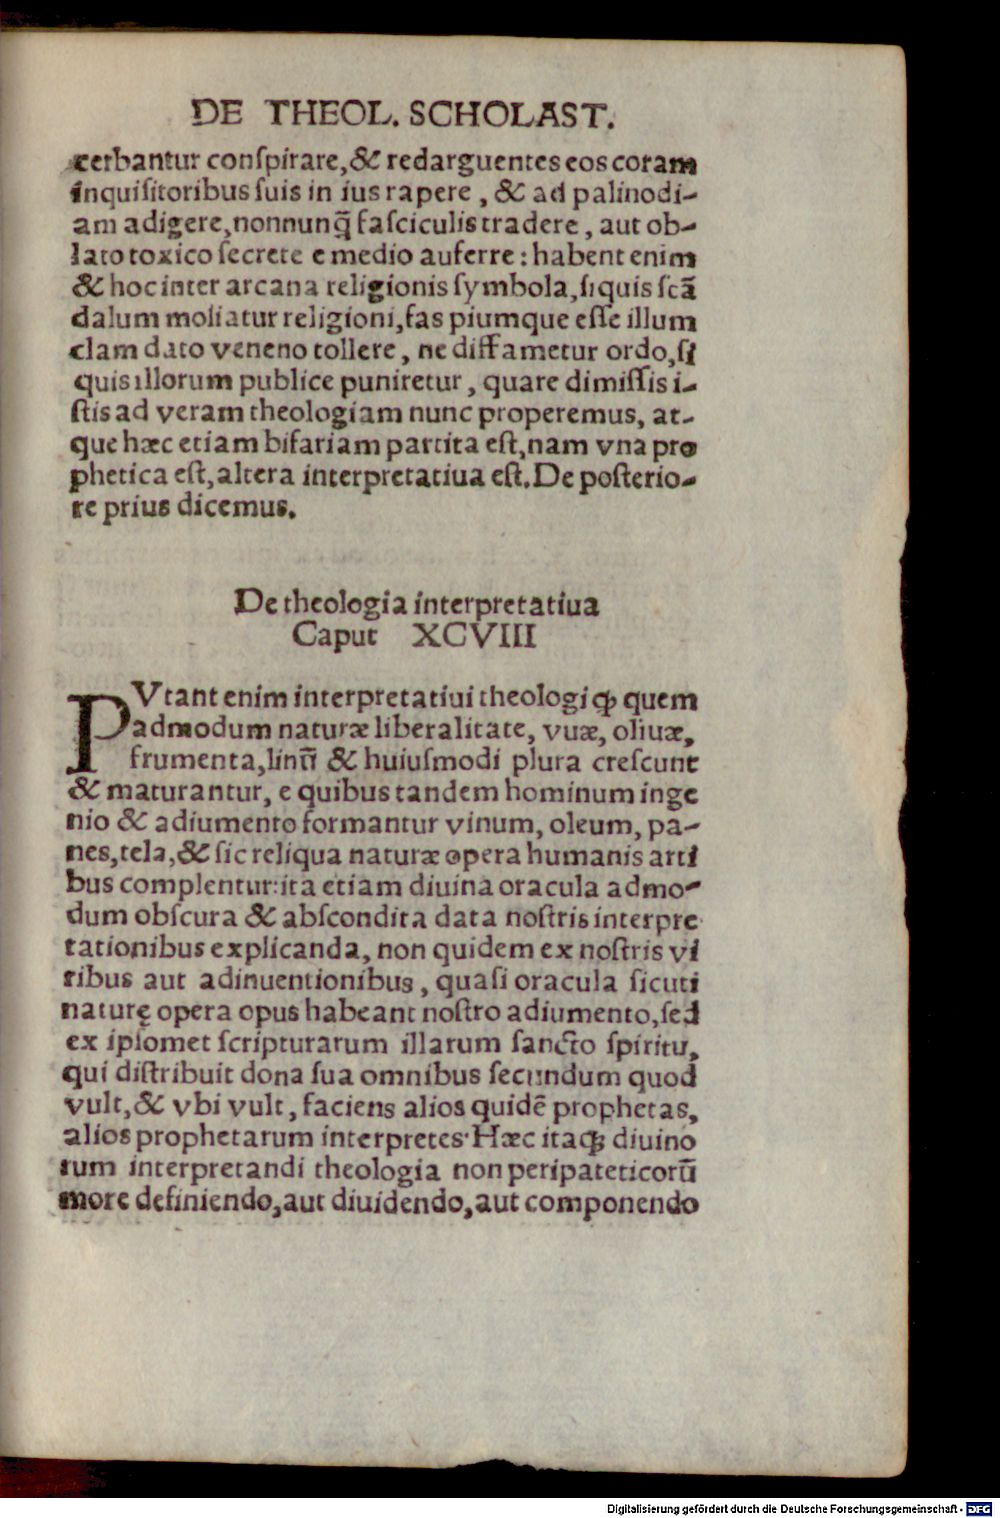 DE THEOL. SCHOLAST.
cerbantur conſpirare,& redarguentes eos coram
inquiſitoribus ſuis in ius rapere , & ad palinodi-
am adigere,nonnunq̃ faſciculis tradere , aut ob-
lato toxico ſecrete e medio auferre : habent enim
& hoc inter arcana religionis ſymbola,ſi quis ſcã
dalum moliatur religioni,fas piumque eſſe illum
clam dato veneno tollere , ne diffametur ordo,ſi
quis illorum publice puniretur , quare dimiſſis i-
ſtis ad veram theologiam nunc properemus, at-
que hæc etiam bifariam partita eſt,nam vna pro
phetica eſt,altera interpretatiua eſt.De poſterio-
re prius dicemus.
De theologia interpretatiua
Caput XCVIII
PVtant enim interpretatiui theologi ꝙ quem
admodum naturæ liberalitate, vuæ, oliuæ,
frumenta,linũ & huiuſmodi plura creſcunt
& maturantur, e quibus tandem hominum inge
nio & adiumento formantur vinum, oleum, pa-
nes,tela,& ſic reliqua naturæ opera humanis arti
bus complentur:ita etiam diuina oracula admo-
dum obſcura & abſcondita data noſtris interpre
tationibus explicanda, non quidem ex noſtris vi
ribus aut adinuentionibus , quaſi oracula ſicuti
naturę opera opus habeant noſtro adiumento,ſed
ex ipſomet ſcripturarum illarum ſancto ſpiritu,
qui diſtribuit dona ſua omnibus ſecundum quod
vult,& vbi vult , faciens alios quidẽ prophetas,
alios prophetarum interpretes·Hæc itaqꝫ diuino
rum interpretandi theologia non peripateticorũ
more definiendo,aut diuidendo,aut componendo
Digitalisierung gefördert durch die Deutsche Forschungsgemeinschaft - DFG